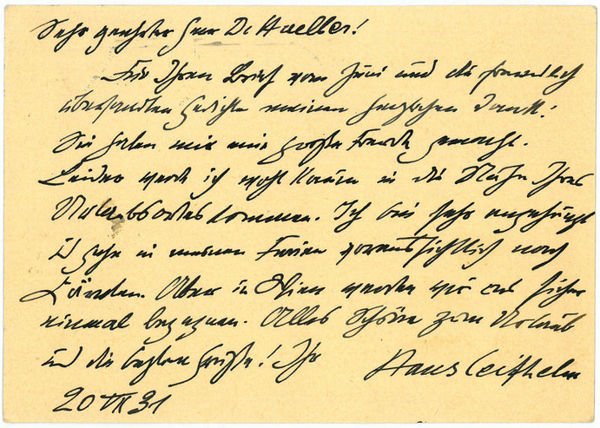 Sehr geehrter Herr Dr Haeller!
Für Ihren Brief vom Juni und die freundlich
übersandten Gedichte meinen herzlichen Dank!
Sie haben mir eine große Freude gemacht.
Leider werde ich wohl kaum in die Nähe Ihres
Urlaubsortes kommen. Ich bin sehr
u gehe in meinen Ferien voraussichtlich nach
Aber in Wien werden wir uns sicher
einmal begegnen. Alles Schöne zum Urlaub
und die besten Grüße! Ihr Hans Leifhelm
20 VII 31